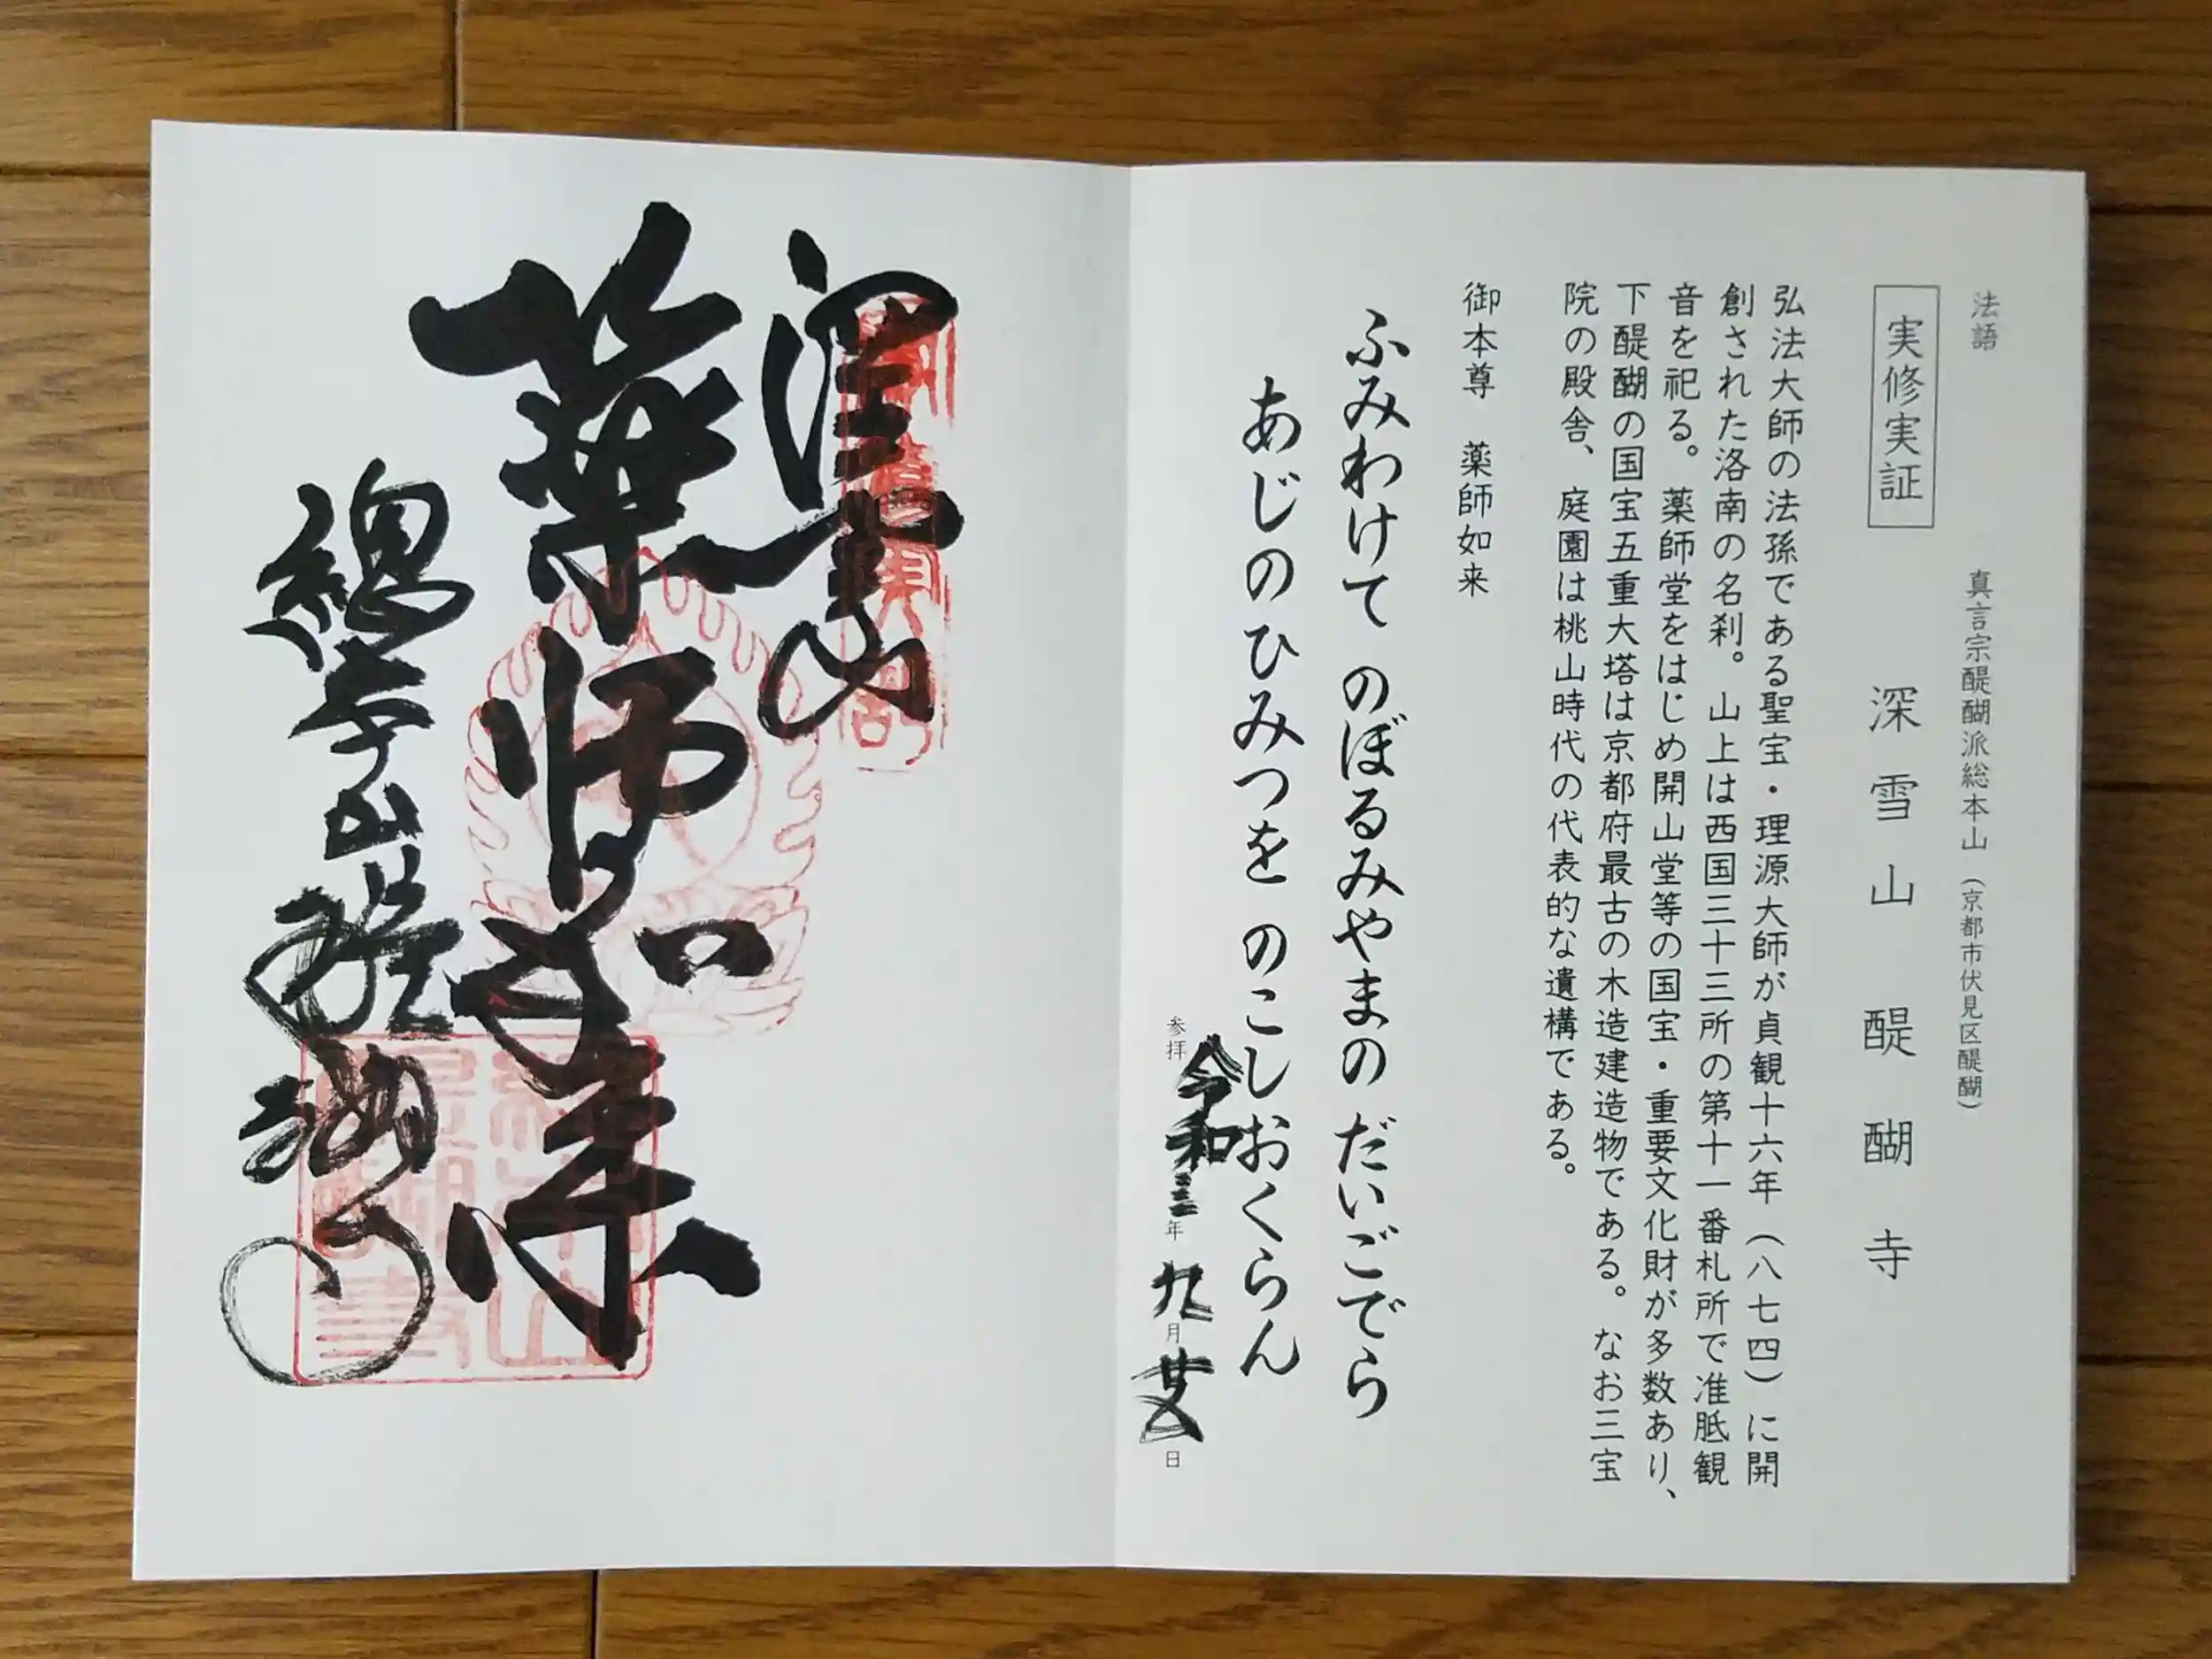 法語
真言宗醍醐派総本山（京都市伏見区醍醐）
実修実証
深雪山 醍醐寺
弘法大師の法孫である聖宝・理源大師が貞観十六年（八七四）に開
創された洛南の名刹。山上は西国三十三所の第十一番札所で准胝観
音を祀る。薬師堂をはじめ開山堂等の国宝・重要文化財が多数あり、
下醍醐の国宝五重大塔は京都府最古の木造建造物である。なお三宝
院の殿舎、庭園は桃山時代の代表的な遺構である。
御本尊 薬師如来
ふみわけて のぼるみやまの だいごでら
あじのひみつを のこしおくらん
参拝 令和三年 九月 廿五日
深雪山
薬師如来
總本山醍醐寺